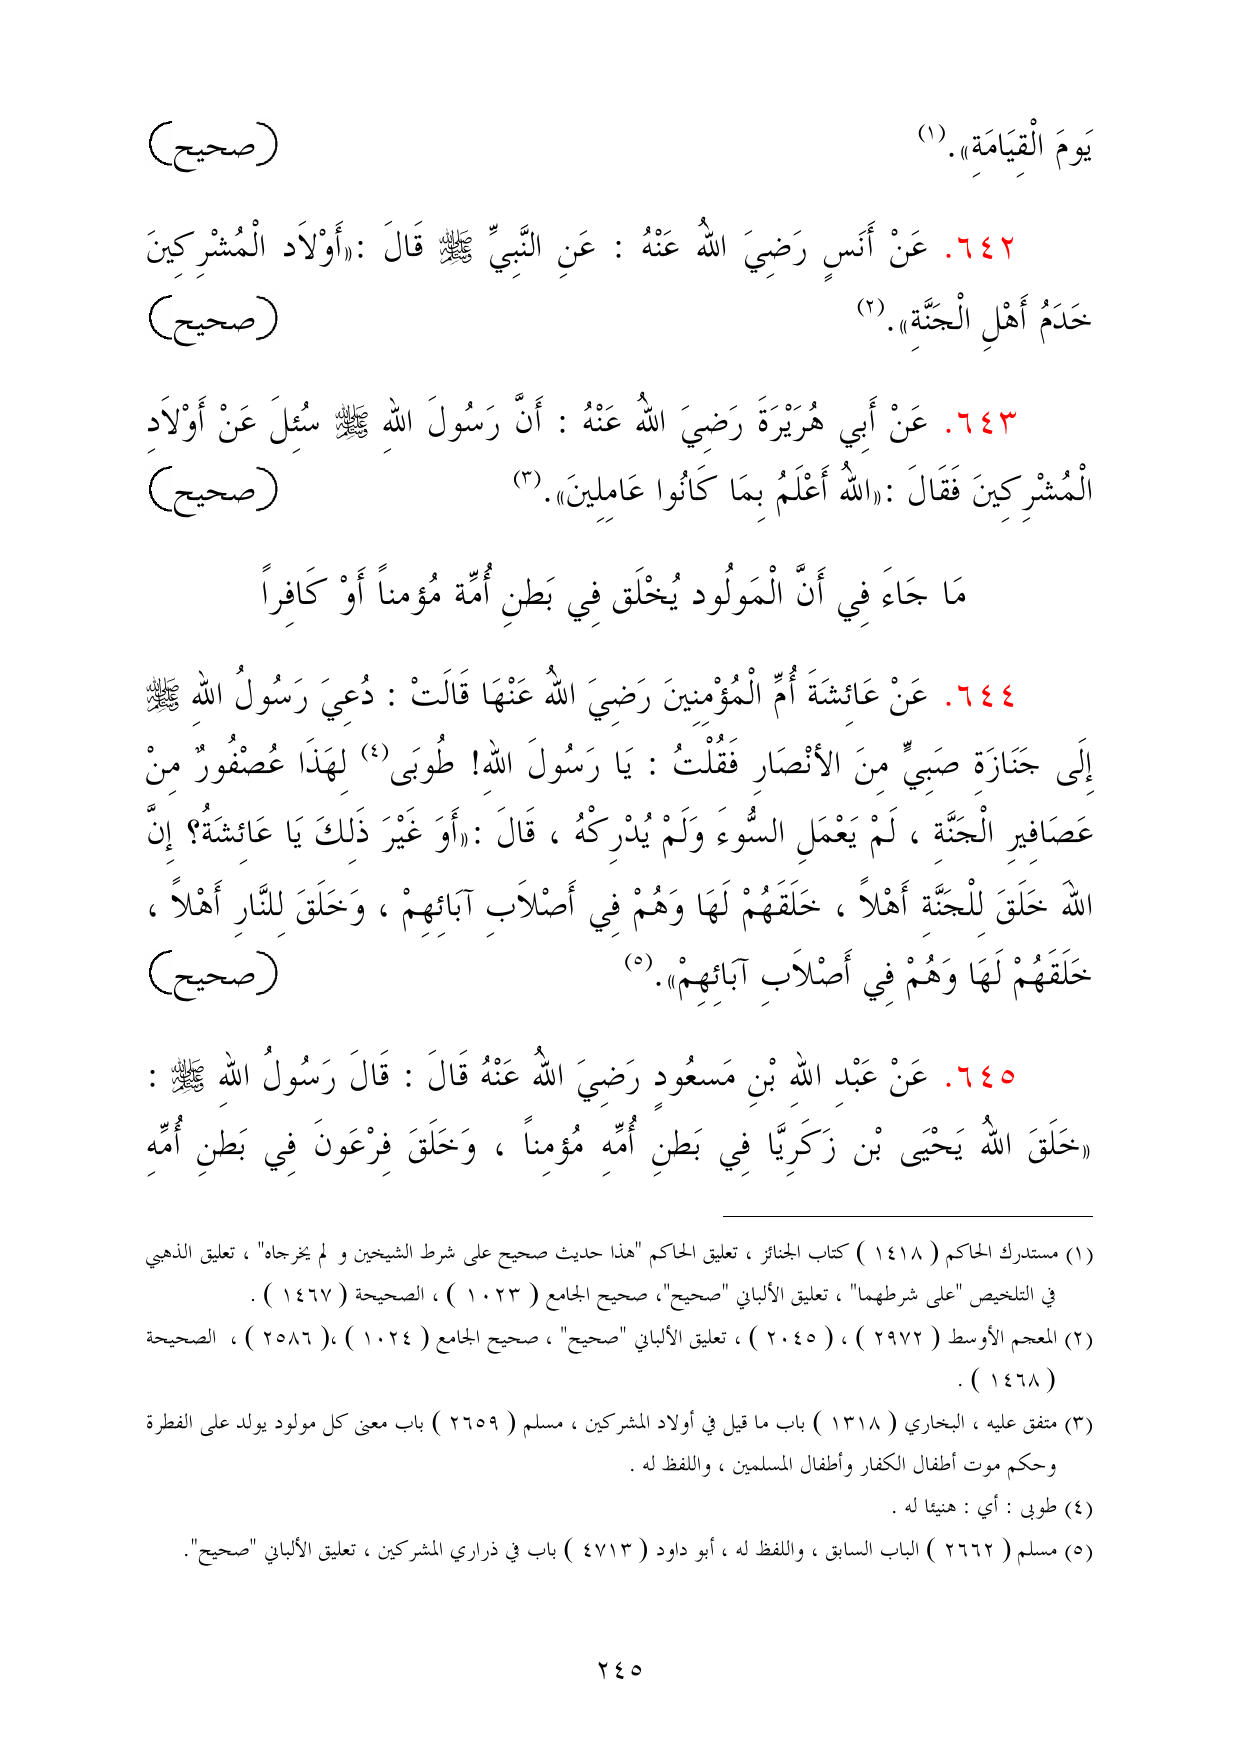 يَومَ الْقِيَامَةِ». (١) (صحيح)
٦٤٢. عَنْ أَنَسٍ رَضِيَ اللهُ عَنْهُ : عَنِ النَّبِيِّ ﷺ قَالَ :«أَوْلاَد الْمُشْرِكِينَ
خَدَمُ أَهْلِ الْجَنَّةِ». (٢) (صحيح)
٦٤٣. عَنْ أَبِي هُرَيْرَةَ رَضِيَ اللهُ عَنْهُ : أَنَّ رَسُولَ اللهِ ﷺ سُئِلَ عَنْ أَوْلاَدِ
الْمُشْرِكِينَ فَقَالَ :«اللهُ أَعْلَمُ بِمَا كَانُوا عَامِلِينَ». (٣) (صحيح)
مَا جَاءَ فِي أَنَّ الْمَولُود يُخْلَق فِي بَطنِ أُمِّة مُؤمناً أَوْ كَافِراً
٦٤٤. عَنْ عَائِشَةَ أُمِّ الْمُؤْمِنِينَ رَضِيَ اللهُ عَنْهَا قَالَتْ : دُعِيَ رَسُولُ اللهِ ﷺ
إِلَى جَنَازَةِ صَبِيٍّ مِنَ الأنْصَارِ فَقُلْتُ : يَا رَسُولَ اللهِ! طُوبَى (٤) لِهَذَا عُصْفُورٌ مِنْ
عَصَافِيرِ الْجَنَّةِ ، لَمْ يَعْمَلِ السُّوءَ وَلَمْ يُدْرِكْهُ ، قَالَ :«أَوَ غَيْرَ ذَلِكَ يَا عَائِشَةُ؟ إِنَّ
اللهَ خَلَقَ لِلْجَنَّةِ أَهْلاً ، خَلَقَهُمْ لَهَا وَهُمْ فِي أَصْلاَبِ آبَائِهِمْ ، وَخَلَقَ لِلنَّارِ أَهْلاً ،
خَلَقَهُمْ لَهَا وَهُمْ فِي أَصْلاَبِ آبَائِهِمْ». (٥) (صحيح)
٦٤٥. عَنْ عَبْدِ اللهِ بْنِ مَسعُودٍ رَضِيَ اللهُ عَنْهُ قَالَ : قَالَ رَسُولُ اللهِ ﷺ :
«خَلَقَ اللهُ يَحْيَى بْن زَكَرِيَّا فِي بَطنِ أُمِّهِ مُؤمِناً ، وَخَلَقَ فِرْعَونَ فِي بَطنِ أُمِّهِ
(١) مستدرك الحاكم ( ١٤١٨ ) كتاب الجنائز ، تعليق الحاكم "هذا حديث صحيح على شرط الشيخين و لم يخرجاه" ، تعليق الذهبي
في التلخيص "على شرطهما" ، تعليق الألباني "صحيح"، صحيح الجامع ( ١٠٢٣ ) ، الصحيحة ( ١٤٦٧ ) .
(٢) المعجم الأوسط ( ٢٩٧٢ ) ، ( ٢٠٤٥ ) ، تعليق الألباني "صحيح" ، صحيح الجامع ( ١٠٢٤ ) ،( ٢٥٨٦ ) ، الصحيحة
( ١٤٦٨ ) .
(٣) متفق عليه ، البخاري ( ١٣١٨ ) باب ما قيل في أولاد المشركين ، مسلم ( ٢٦٥٩ ) باب معنى كل مولود يولد على الفطرة
وحكم موت أطفال الكفار وأطفال المسلمين ، واللفظ له .
(٤) طوبى : أي : هنيئا له .
(٥) مسلم ( ٢٦٦٢ ) الباب السابق ، واللفظ له ، أبو داود ( ٤٧١٣ ) باب في ذراري المشركين ، تعليق الألباني "صحيح".
٢٤٥